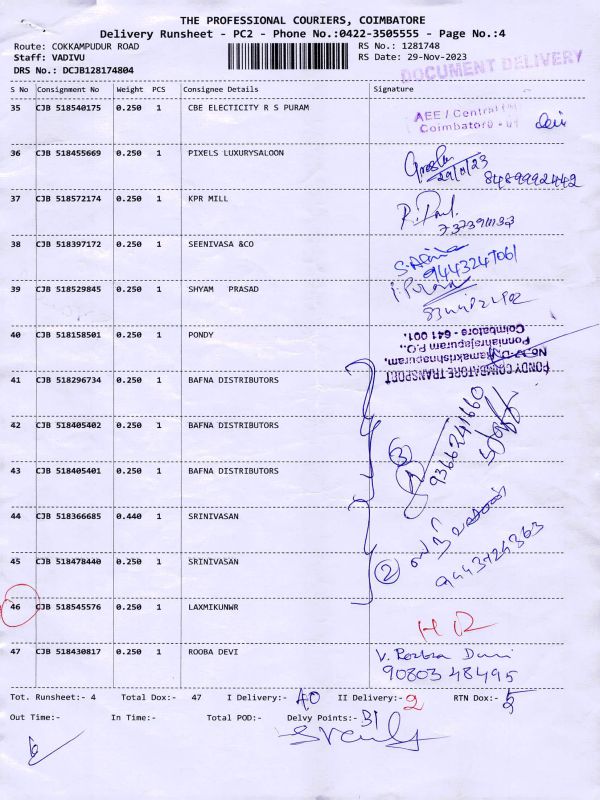 THE PROFESSIONAL COURIERS, COIMBATORE
Delivery Runsheet - PC2 - Phone No.:0422-3505555 - Page No.:4
Route: COKKAMPUDUR ROAD RS No.: 1281748
Staff: VADIVU RS Date: 29-Nov-2023
DRS No.: DCJB128174804 DOCUMENT DELIVERY
S No Consignment No Weight PCS Consignee Details Signature
35 CJB 518540175 0.250 1 CBE ELECTICITY R S PURAM
AEE / Central
Coimbatore -
36 CJB 518455669 0.250 1 PIXELS LUXURYSALOON
8489992442
37 CJB 518572174 0.250 1 KPR MILL
38 CJB 518397172 0.250 1 SEENIVASA &CO
9443247061
39 CJB 518529845 0.250 1 SHYAM PRASAD
40 CJB 518158501 0.250 1 PONDY
PONDY COIMBATORE TRANSPORT
Ramakrishnapuram,
Ponniahrajapuram P.O.,
Coimbatore - 641 001.
41 CJB 518296734 0.250 1 BAFNA DISTRIBUTORS
42 CJB 518405402 0.250 1 BAFNA DISTRIBUTORS
3
9366241660
43 CJB 518405401 0.250 1 BAFNA DISTRIBUTORS
44 CJB 518366685 0.440 1 SRINIVASAN
45 CJB 518478440 0.250 1 SRINIVASAN
2
46 CJB 518545576 0.250 1 LAXMIKUNWR
47 CJB 518430817 0.250 1 ROOBA DEVI
90803 48495
Tot. Runsheet:- 4 Total Dox:- 47 I Delivery:- 40 II Delivery:- 2 RTN Dox:- 5
Out Time:- In Time:- Total POD:- Delvy Points:- 31